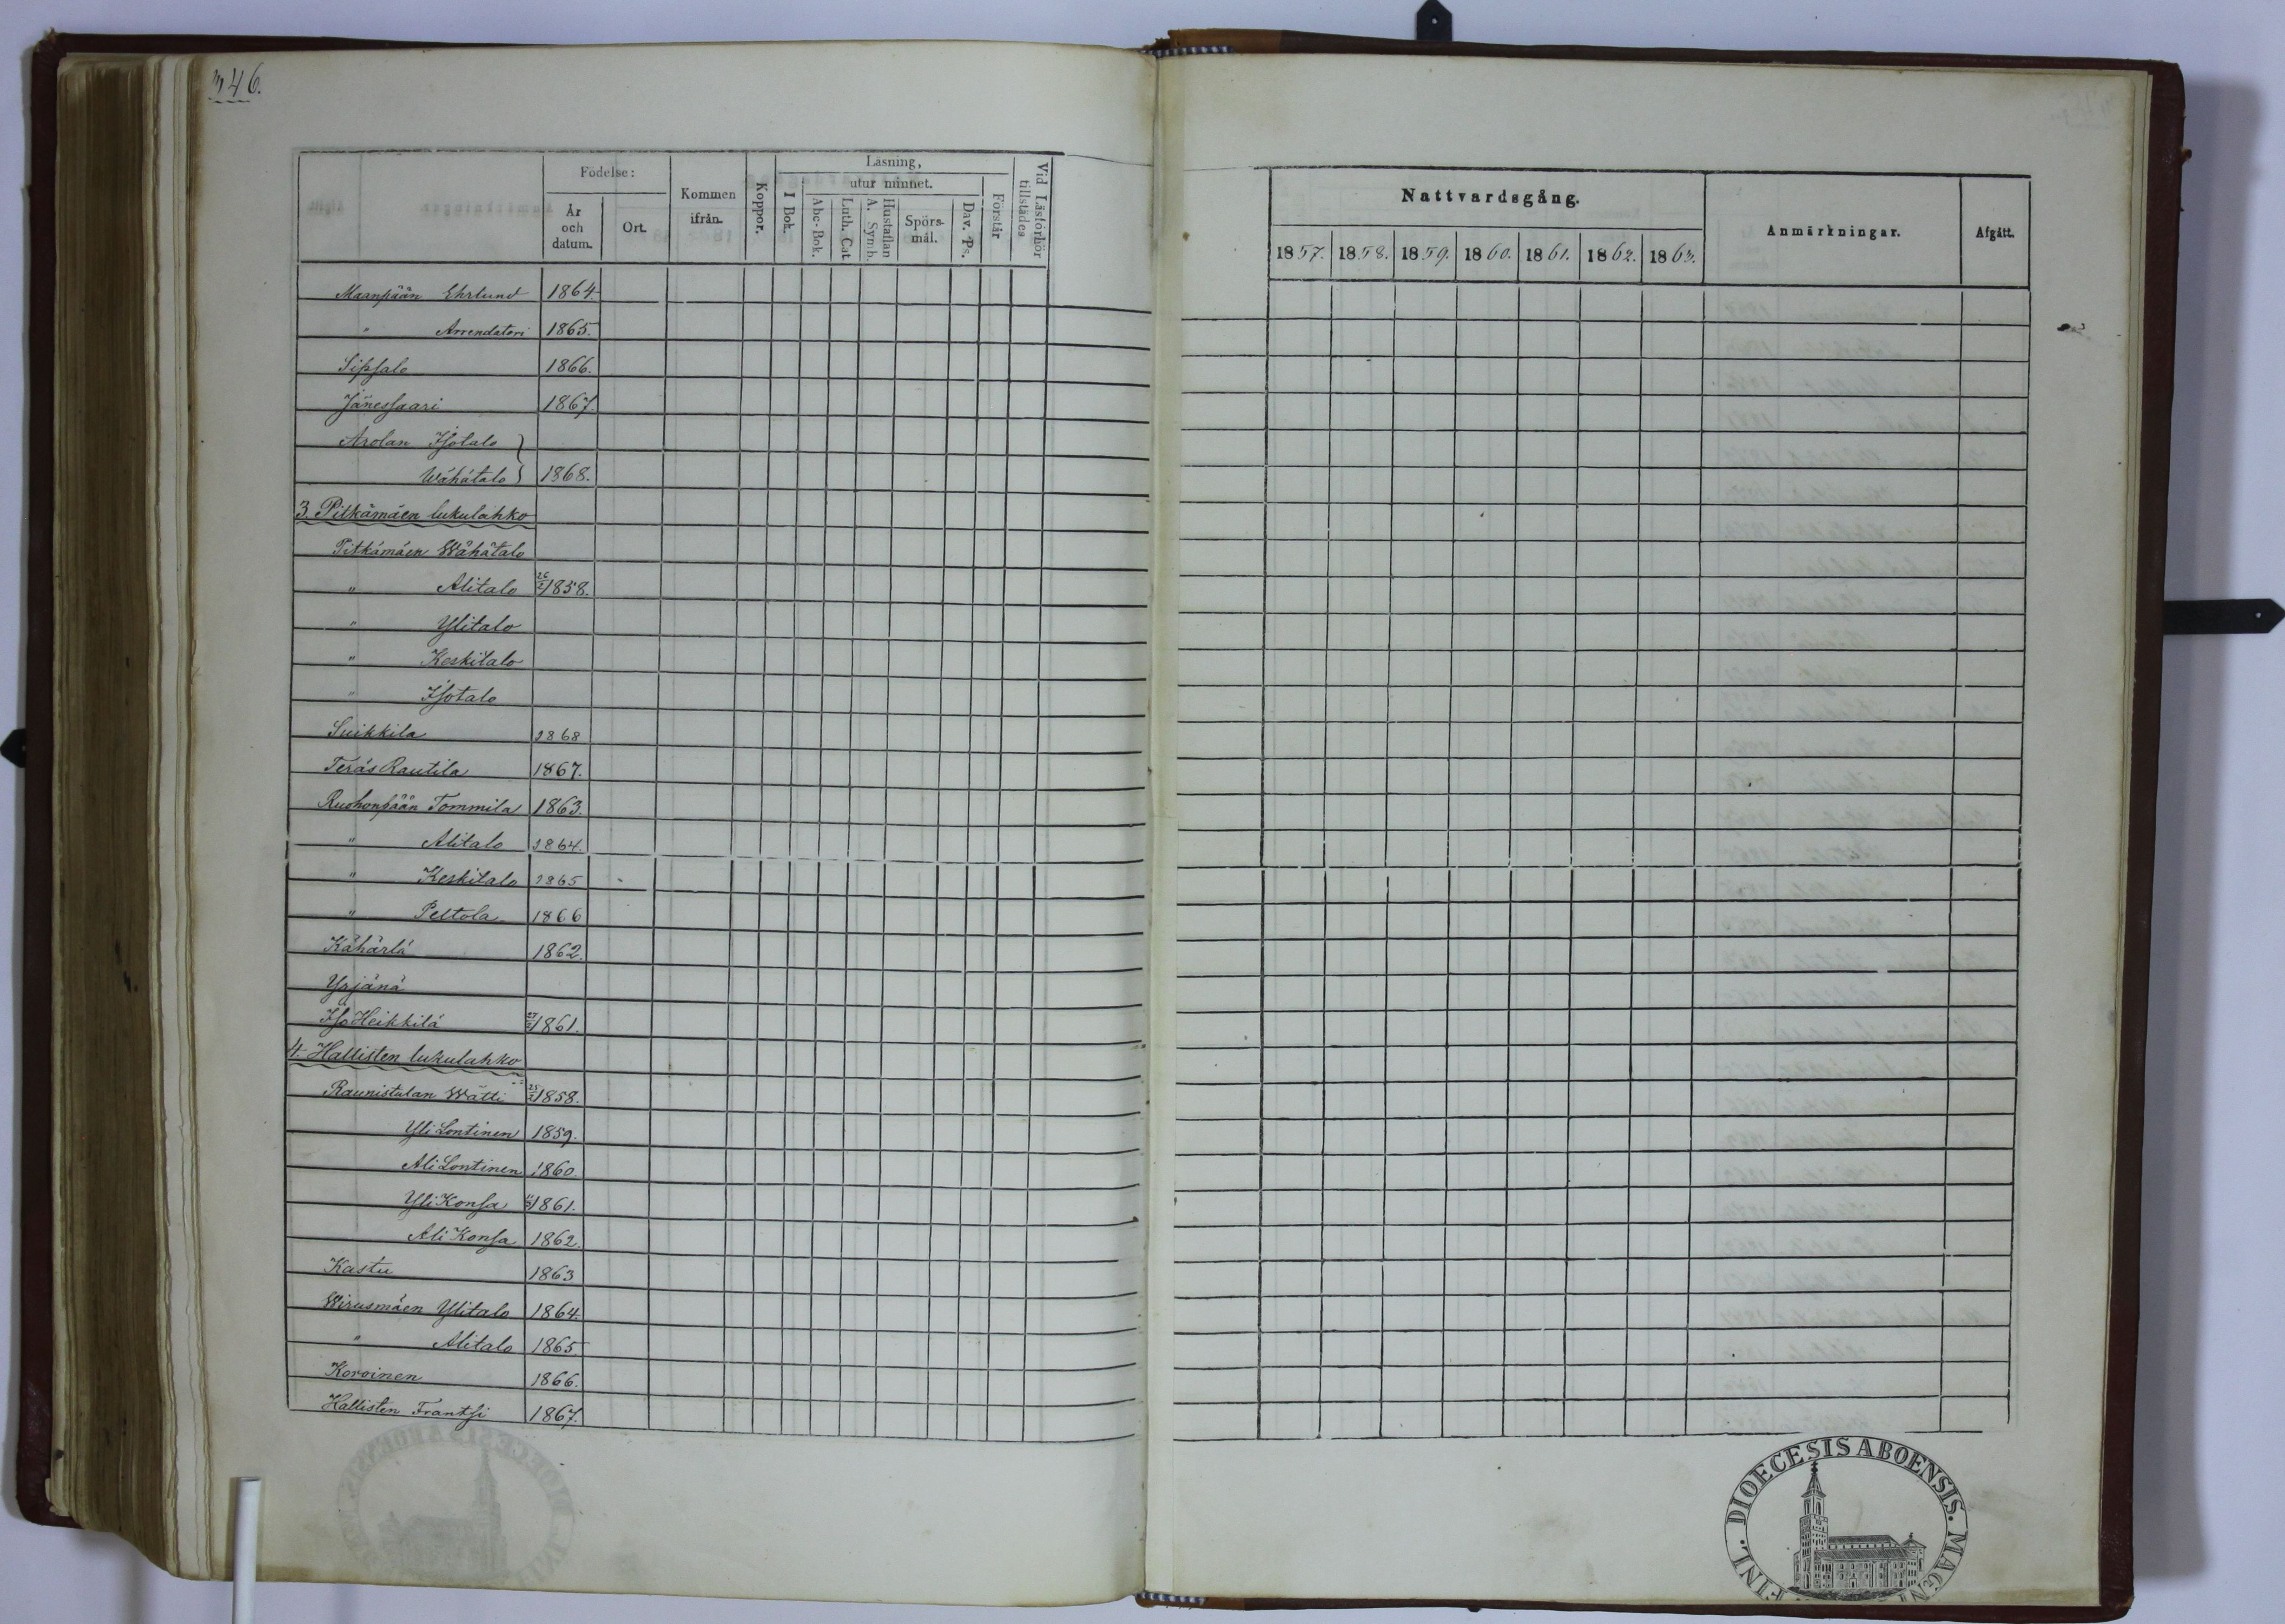 346.
Födelse:
År och datum.
Ort.
Kommen ifrån.
Koppor.
Läsning,
I Bok.
utur minnet.
Abc-Bok.
Luth. Cat
Hustaflan A. Symb.
Spörs-mål.
Dav. Ps.
Förstår
Vid Läsförhör tillstädes
Nattvardsgång.
1857. 1858. 1859. 1860. 1861. 1862. 1863.
Anmärkningar.
Afgått.
Maanpään Ehrlund 1864.
" Arrendatori 1865.
Sipsalo 1866.
Jänessaari 1867.
Arolan Isotalo
Wähätalo 1868.
3. Pitkämäen lukulahko
Pitkämäen Wähätalo
" Alitalo 1858.
" Ylitalo
" Keskitalo
" Isotalo
Suikkila 1868
Teräs Rautila 1867.
Ruohonpään Tommila 1863.
" Alitalo 1864.
" Keskitalo 1865
" Peltola 1866
Kähärlä 1862.
Yrjänä
Iso Heikkilä 1861.
4. Hallisten lukulahko
Raunistulan Wätti 25/2 1858.
Yli Lontinen 1859.
Ali Lontinen 1860.
Yli Konsa 1861.
Ali Konsa 1862.
Kastu 1863
Wirusmäen Ylitalo 1864.
" Alitalo 1865
Koroinen 1866.
Hallisten Frantsi 1867.
DIOECESIS ABOENSIS. MAGNI FINL.